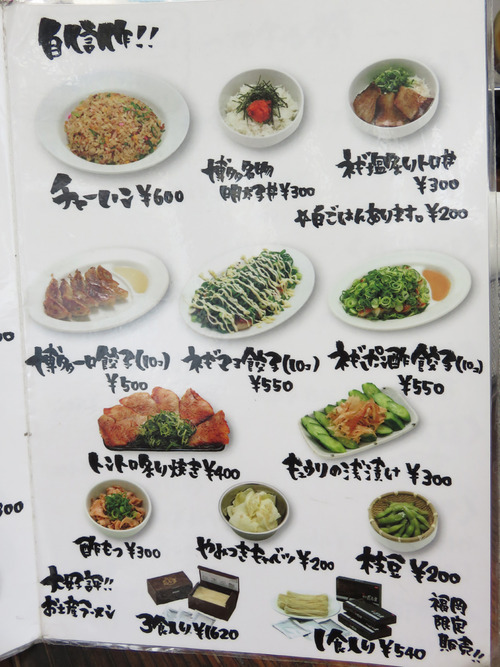 自信作!!
チャーハン ¥600
博多名物
明太子丼 ¥300
ネギ塩炙りトロ丼
¥300
☆白ごはんあります。¥200
博多一口餃子(10コ)
¥500
ネギマヨ餃子(10コ)
¥550
ネギポン酢餃子(10コ)
¥550
トントロ炙り焼き ¥400
きゅうりの浅漬け ¥300
酢もつ ¥300
やみつきキャベツ ¥200
枝豆 ¥200
大好評!!
お土産ラーメン
3食入り ¥1620
1食入り ¥540
福岡
限定
販売!!